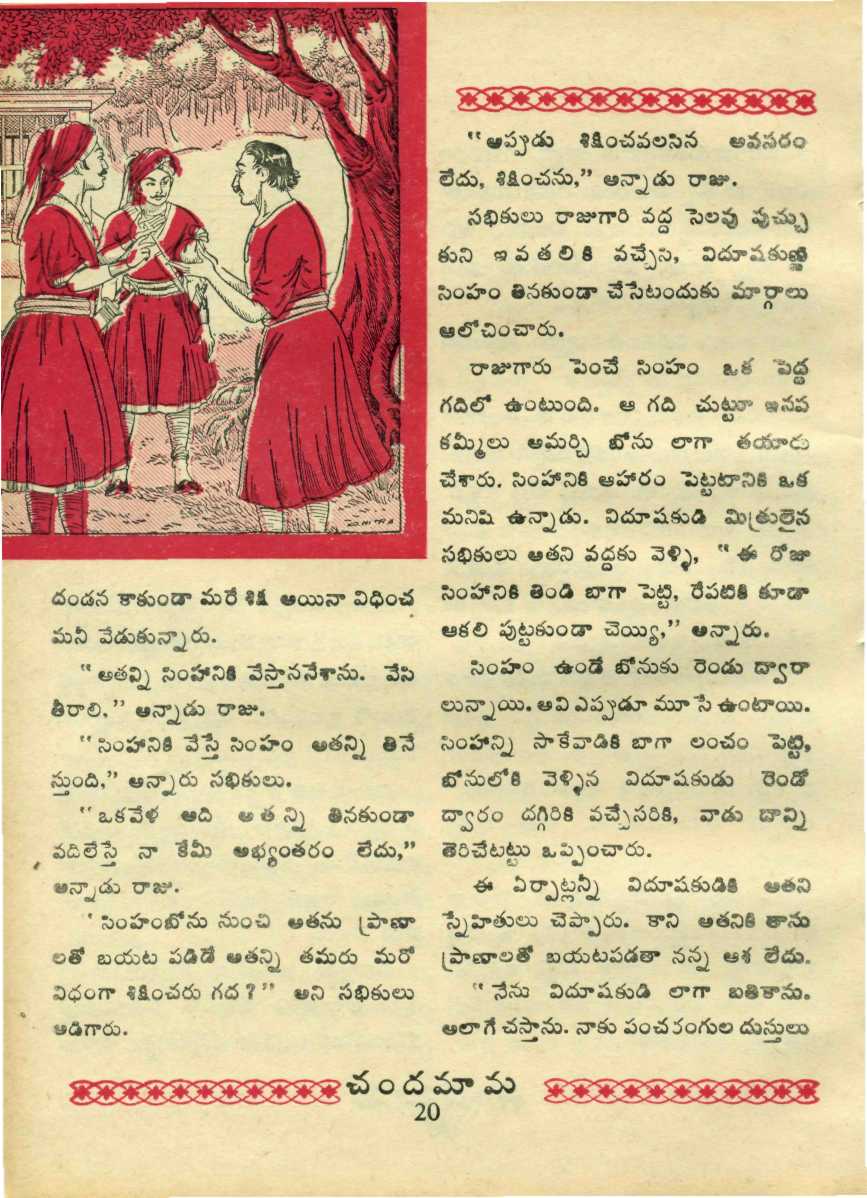 దండన కాకుండా మరే శిక్ష అయినా విధించ
మనీ వేడుకున్నారు.
"అతన్ని సింహానికి వేస్తాననేశాను. వేసి
తీరాలి," అన్నాడు రాజు.
"సింహానికి వేస్తే సింహం అతన్ని తినే
స్తుంది," అన్నారు సభికులు.
"ఒకవేళ అది అతన్ని తినకుండా
వదిలేస్తే నా కేమీ అభ్యంతరం లేదు,"
అన్నాడు రాజు.
'సింహంబోను నుంచి అతను ప్రాణా
లతో బయట పడిడే అతన్ని తమరు మరో
విధంగా శిక్షించరు గద?" అని సభికులు
అడిగారు.
"అప్పుడు శిక్షించవలసిన అవసరం
లేదు, శిక్షించను," అన్నాడు రాజు.
సభికులు రాజుగారి వద్ద సెలవు పుచ్చు
కుని ఇవతలికి వచ్చేసి, విదూషకుణ్ణి
సింహం తినకుండా చేసేటందుకు మార్గాలు
ఆలోచించారు.
రాజుగారు పెంచే సింహం ఒక పెద్ద
గదిలో ఉంటుంది. ఆ గది చుట్టూ ఇనప
కమ్మీలు అమర్చి బోను లాగా తయారు
చేశారు. సింహానికి ఆహారం పెట్టటానికి ఒక
మనిషి ఉన్నాడు. విదూషకుడి మిత్రులైన
సభికులు అతని వద్దకు వెళ్ళి, "ఈ రోజు
సింహానికి తిండి బాగా పెట్టి, రేపటికి కూడా
ఆకలి పుట్టకుండా చెయ్యి," అన్నారు.
సింహం ఉండే బోనుకు రెండు ద్వారా
లున్నాయి. అవి ఎప్పుడూ మూసే ఉంటాయి.
సింహాన్ని సాకేవాడికి బాగా లంచం పెట్టి,
బోనులోకి వెళ్ళిన విదూషకుడు రెండో
ద్వారం దగ్గిరికి వచ్చేసరికి, వాడు దాన్ని
తెరిచేటట్టు ఒప్పించారు.
ఈ ఏర్పాట్లన్నీ విదూషకుడికి అతని
స్నేహితులు చెప్పారు. కాని అతనికి తాను
ప్రాణాలతో బయటపడతా నన్న ఆశ లేదు.
"నేను విదూషకుడి లాగా బతికాను.
అలాగే చస్తాను. నాకు పంచరంగుల దుస్తులు
చందమామ
20